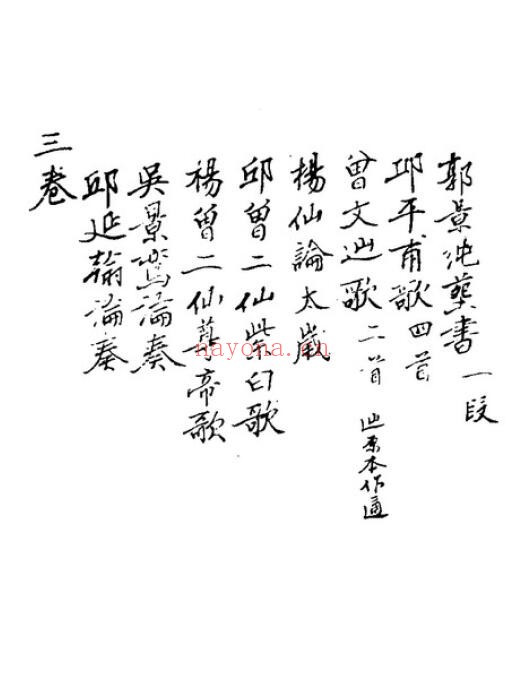 郭景純葬書 一段
邱平甫歌 四首
曾文辿歌 二首 辿原本作
楊仙論太歲
邱曾二仙紫白歌
楊曾二仙帝歌
吳景鸞論奏
邱延翰論奏
三卷
nayona.cn